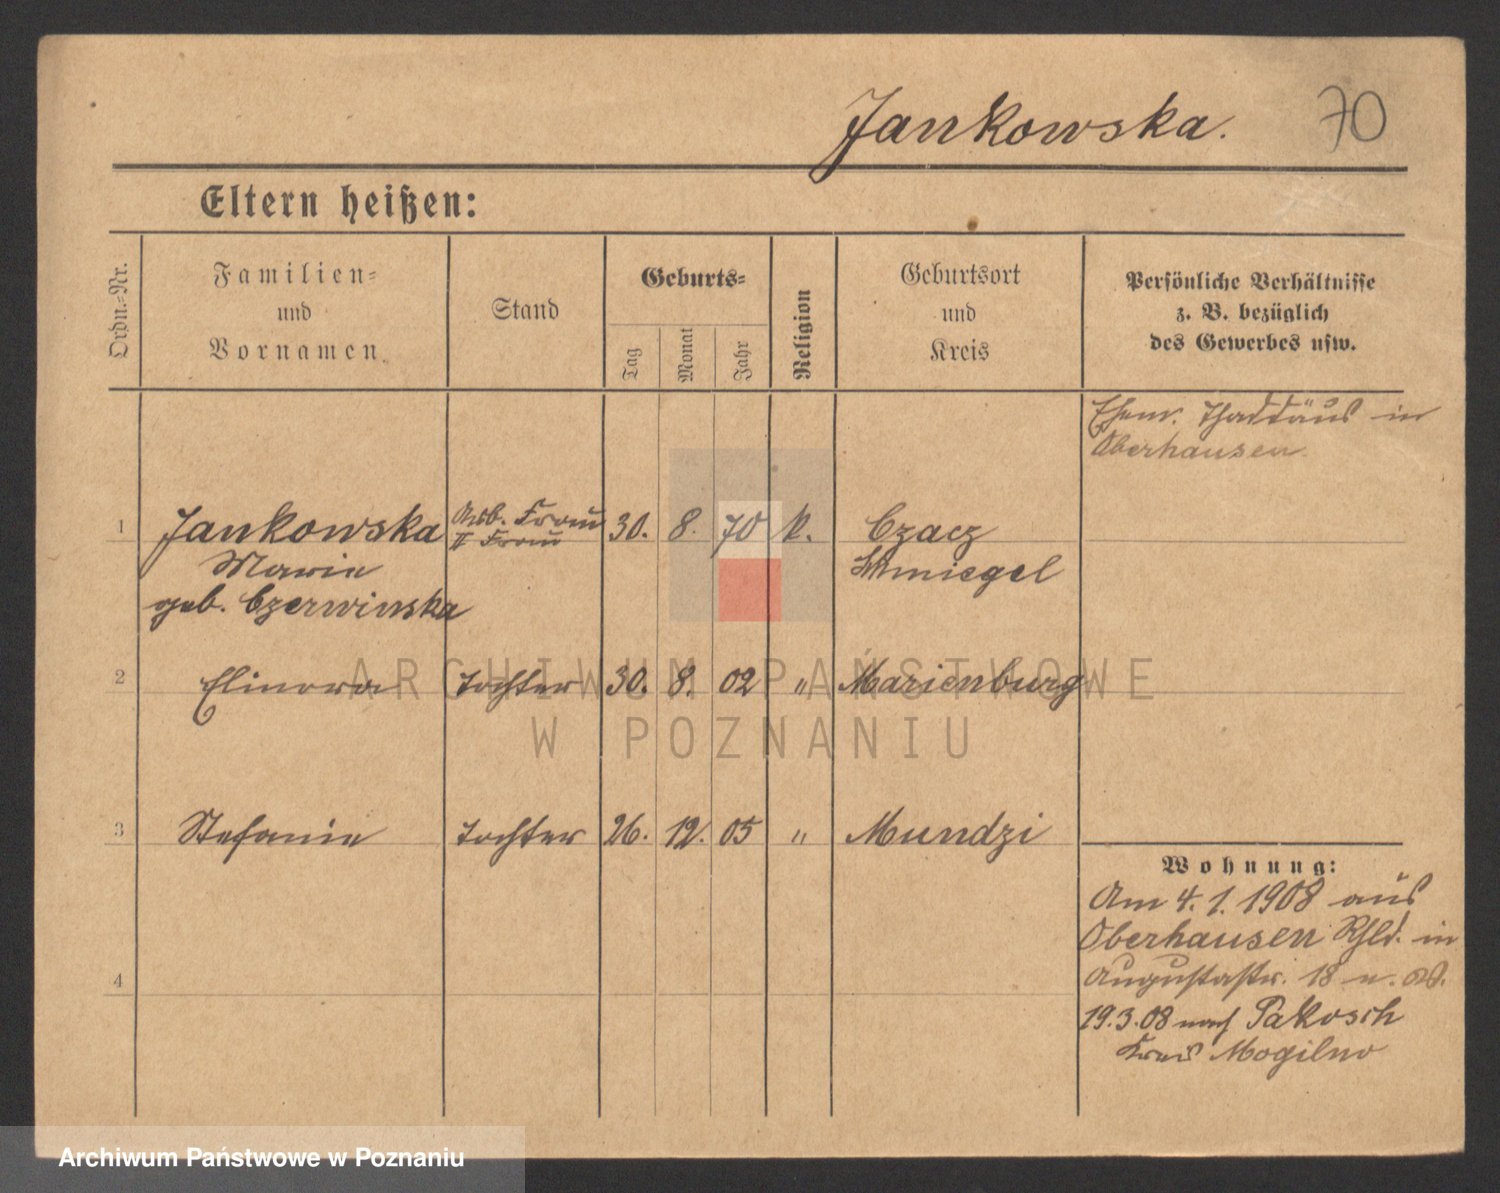 Jankowska. 70
Eltern heißen:
Ordn.-Nr.
Familien-
und
Vornamen.
Stand
Geburts-
Tag
Monat
Jahr
Religion
Geburtsort
und
Kreis
Persönliche Verhältnisse
z. B. bezüglich
des Gewerbes usw.
Ehem. Thaddäus in
Oberhausen.
1 Jankowska Arb. Frau 30. 8. 70 k. Czacz
II Frau
Marie Schmiegel
geb. Czerwinska
2 Elinora Tochter 30. 8. 02 " Marienburg
3 Stefanie Tochter 26. 12. 05 " Mundzi
Wohnung:
Am 4. 1. 1908 aus
Oberhausen Rhld. in
Augustastr. 18 n.
4
19.3.08 nach Pakosch
Kreis Mogilno
ARCHIWUM PAŃSTWOWE
W POZNANIU
Archiwum Państwowe w Poznaniu